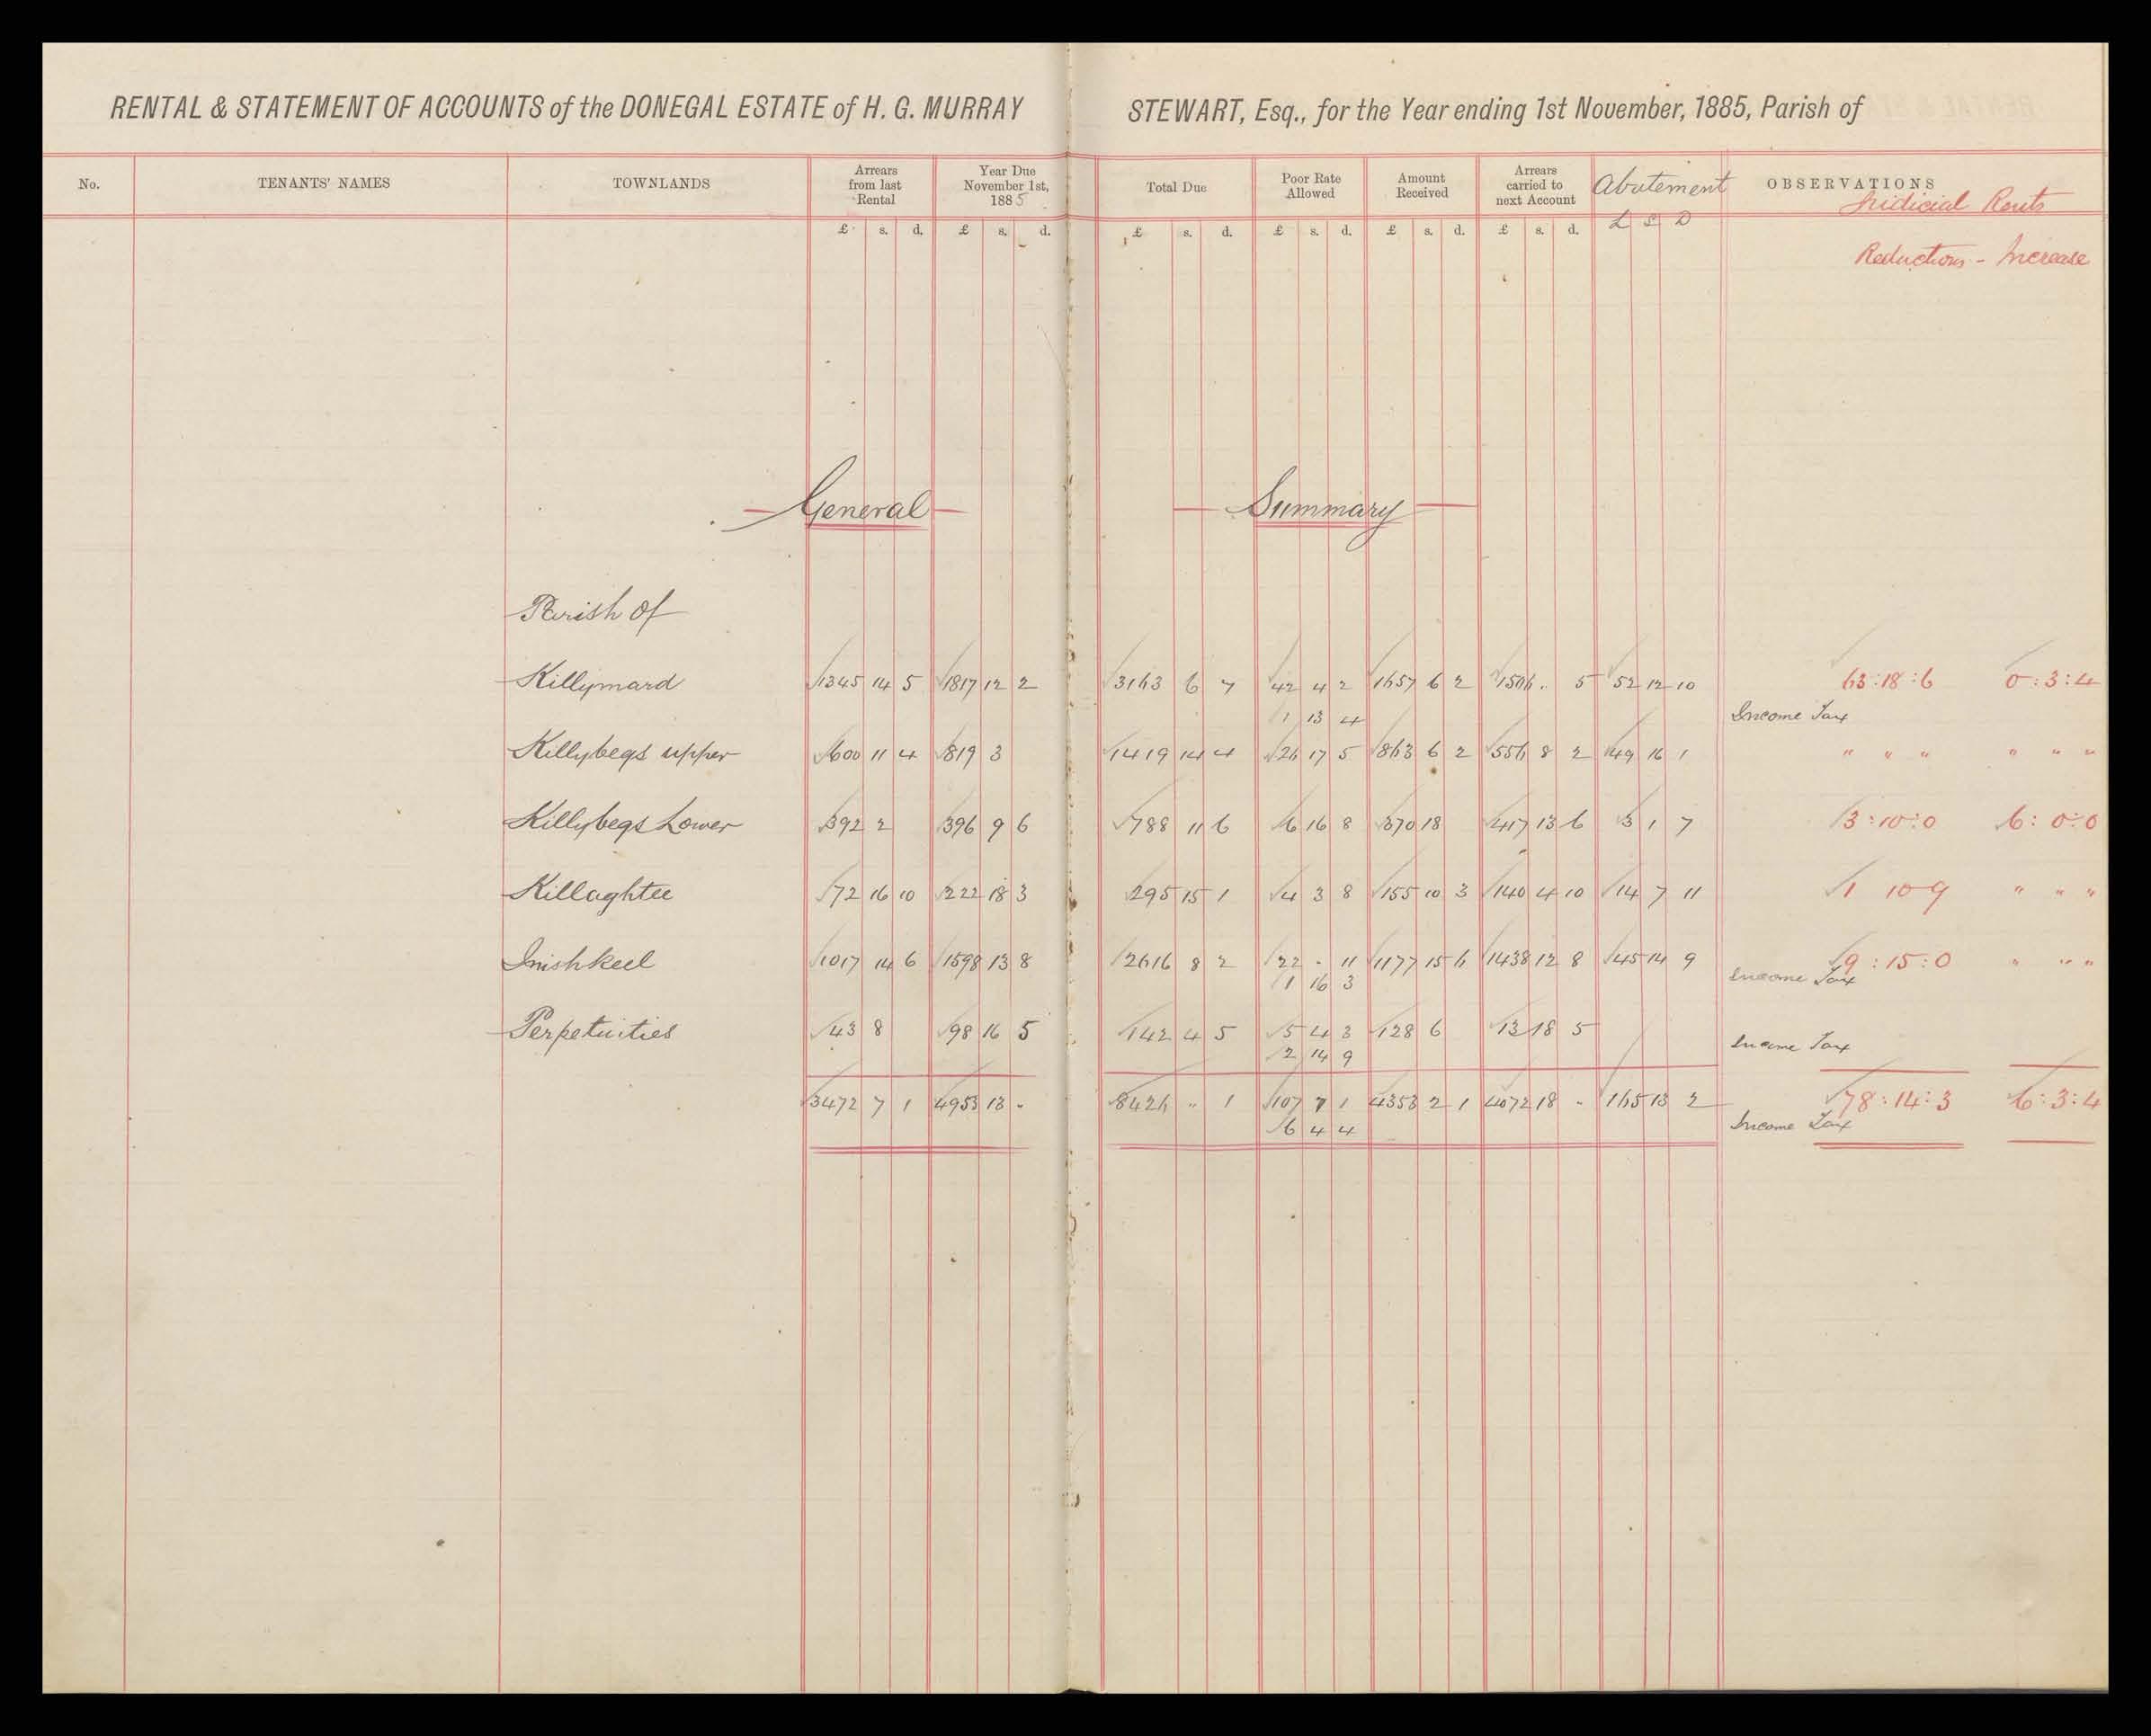 RENTAL & STATEMENT OF ACCOUNTS of the DONEGAL ESTATE of H. G. MURRAY STEWART, Esq., for the Year ending 1st November, 1885, Parish of
No. TENANTS' NAMES TOWNLANDS Arrears from last Rental Year Due November 1st, 1885 Total Due Poor Rate Allowed Amount Received Arrears carried to next Account Abatement OBSERVATIONS
Judicial Rents
£ s. d. £ s. d. £ s. d. £ s. d. £ s. d. £ s. d. £ S D
Reductions - Increase
General Summary
Parish of
Killymard 1345 14 5 1817 12 2 3163 6 7 42 4 2 1657 6 2 1506 . 5 52 12 10 63:18:6 0:3:4
1 13 4 Income Tax
Killybegs upper 600 11 4 819 3 1419 14 4 26 17 5 863 6 2 556 8 2 49 16 1 " " " " " "
Killybegs Lower 392 2 396 9 6 788 11 6 6 16 8 370 18 417 13 6 3 1 7 3:10:0 6:0:0
Killaghtee 72 16 10 222 18 3 295 15 1 4 3 8 155 10 3 140 4 10 14 7 11 1 10 9 " " "
Inishkeel 1017 14 6 1598 13 8 2616 8 2 22 - 11 1177 15 6 1438 12 8 45 14 9 9:15:0 " " "
1 16 3 Income Tax
Perpetuities 43 8 98 16 5 142 4 5 5 4 3 128 6 13 18 5
2 14 9 Income Tax
3472 7 1 4953 13 - 8426 " 1 107 7 1 4353 2 1 4072 18 - 165 13 2 78:14:3 6:3:4
6 4 4 Income Tax